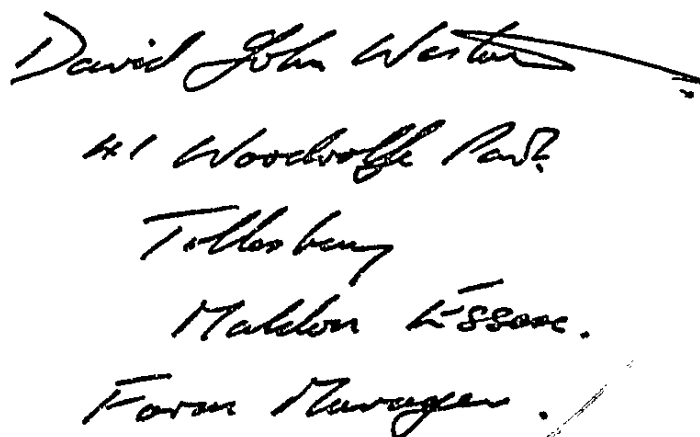 David John Weston
41 Woodrolfe Park
Tollesbury
Maldon Essex.
Farm Manager.